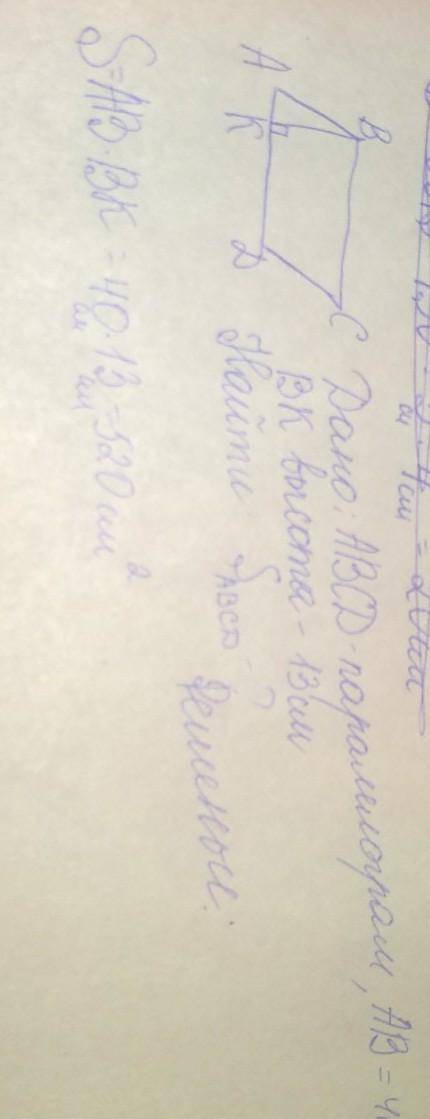 A
B
K
D
C
Дано: ABCD-паралилограм, AB = 4
BK высота - 13 см
Найти S ABCD - ?
Решеный:
S=AB·BK = 40 см · 13 см = 520 см²